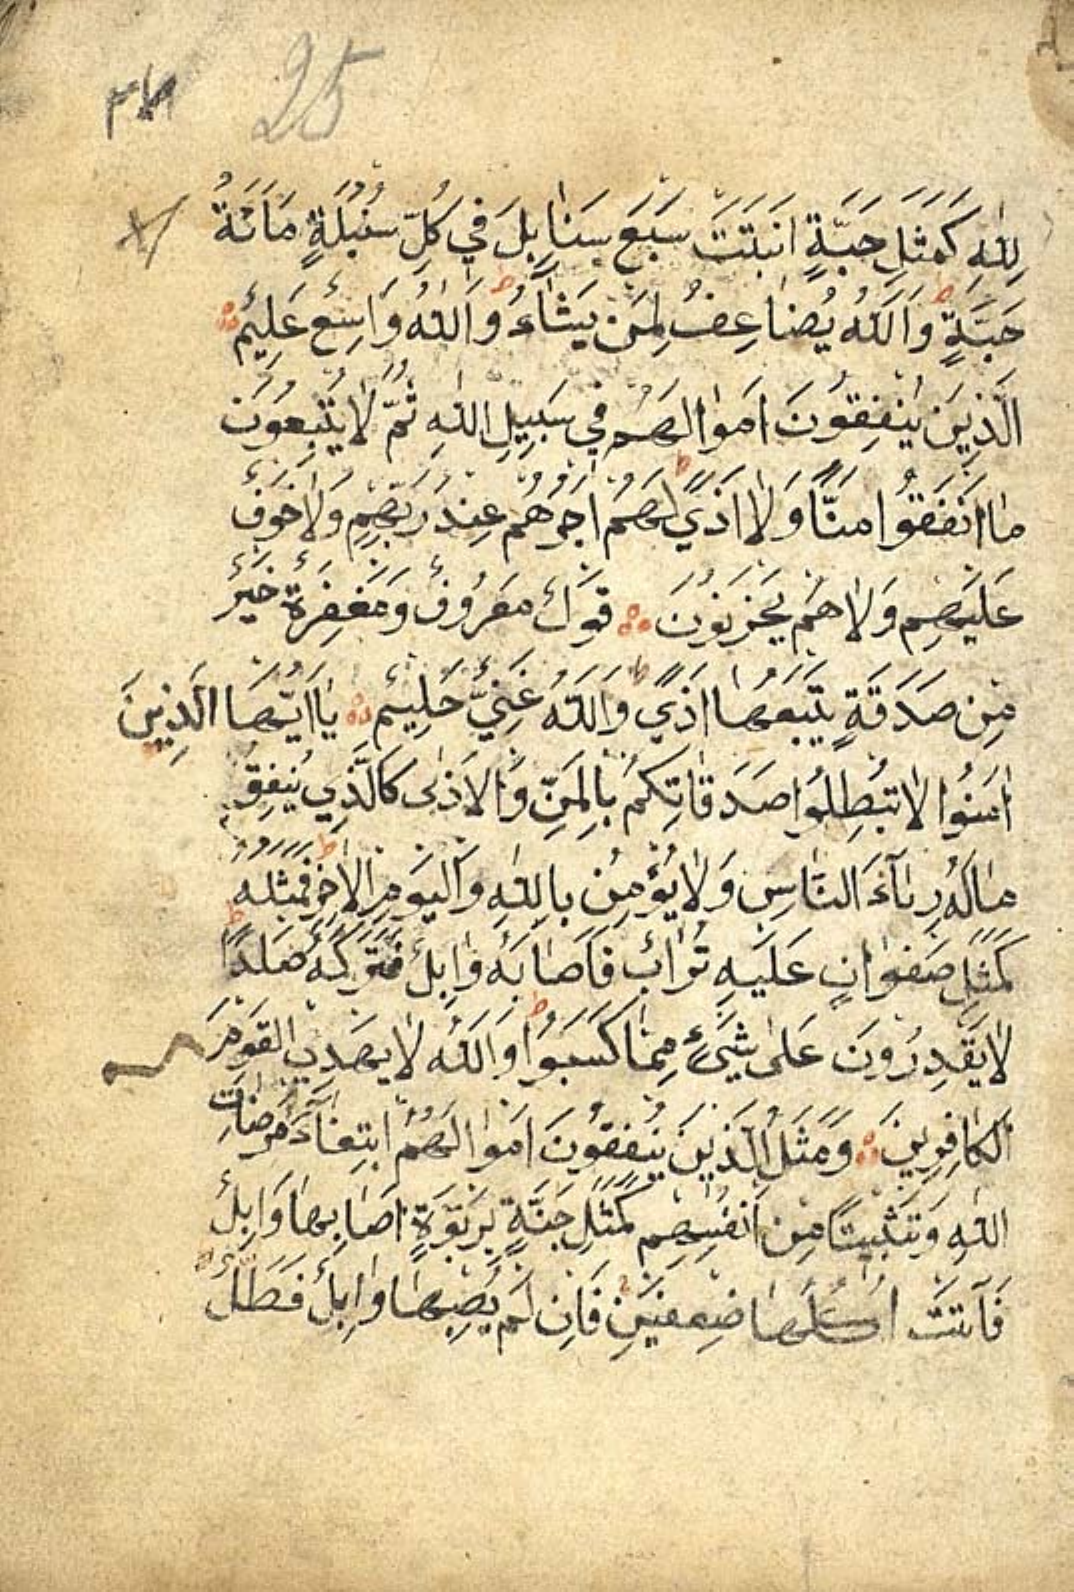 25
لِلّٰهِ كَمَثَلِ حَبَّةٍ اَنْبَتَتْ سَبْعَ سَنَابِلَ فِي كُلِّ سُنْبُلَةٍ مَائَةُ
حَبَّةٍ ط وَاللّٰهُ يُضَاعِفُ لِمَنْ يَشَاءُ ط وَاللّٰهُ وَاسِعٌ عَلِيمٌ
الَّذِينَ يُنْفِقُونَ اَمْوَالَهُمْ فِي سَبِيلِ اللّٰهِ ثُمَّ لَا يُتْبِعُونَ
مَا اَنْفَقُوا مَنًّا وَلَا اَذًي ط لَهُمْ اَجْرُهُمْ عِنْدَ رَبِّهِمْ وَلَا خَوْفٌ
عَلَيْهِمْ وَلَا هُمْ يَحْزَنُونَ قَوْلٌ مَعْرُوفٌ وَمَغْفِرَةٌ خَيْرٌ
مِنْ صَدَقَةٍ يَتْبَعُهَا اَذًي ط وَاللّٰهُ غَنِيٌّ حَلِيمٌ يَا اَيُّهَا الَّذِينَ
اٰمَنُوا لَا تُبْطِلُوا صَدَقَاتِكُمْ بِالْمَنِّ وَالْاَذٰى كَالَّذِي يُنْفِقُ
مَالَهُ رِئَآءَ النَّاسِ وَلَا يُؤْمِنُ بِاللّٰهِ وَالْيَوْمِ الْاٰخِرِ ط فَمَثَلُهُ
كَمَثَلِ صَفْوَانٍ عَلَيْهِ تُرَابٌ فَاَصَابَهُ وَابِلٌ فَتَرَكَهُ صَلْدًا ط
لَا يَقْدِرُونَ عَلٰى شَيْءٍ مِمَّا كَسَبُوا ط وَاللّٰهُ لَا يَهْدِي الْقَوْمَ
الْكَافِرِينَ وَمَثَلُ الَّذِينَ يُنْفِقُونَ اَمْوَالَهُمُ ابْتِغَآءَ مَرْضَاتِ
اللّٰهِ وَتَثْبِيتًا مِنْ اَنْفُسِهِمْ كَمَثَلِ جَنَّةٍ بِرَبْوَةٍ اَصَابَهَا وَابِلٌ
فَاٰتَتْ اُكُلَهَا ضِعْفَيْنِ فَاِنْ لَمْ يُصِبْهَا وَابِلٌ فَطَلٌّ